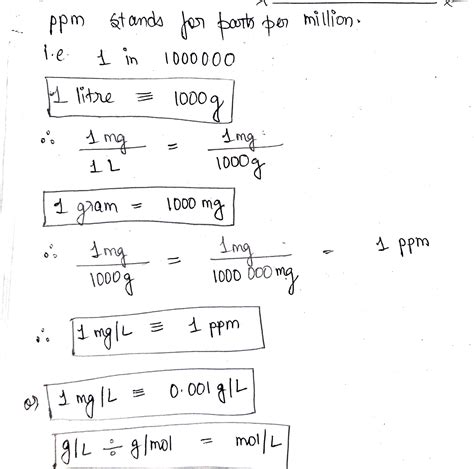 ppm stands for parts per million.
i.e 1 in 1000000
1 litre ≡ 1000g
∴ 1mg / 1L = 1mg / 1000g
1 gram = 1000 mg
∴ 1mg / 1000g = 1mg / 1000 000 mg = 1 ppm
∴ 1 mg/L ≡ 1 ppm
or 1 mg/L ≡ 0.001 g/L
g/L ÷ g/mol = mol/L